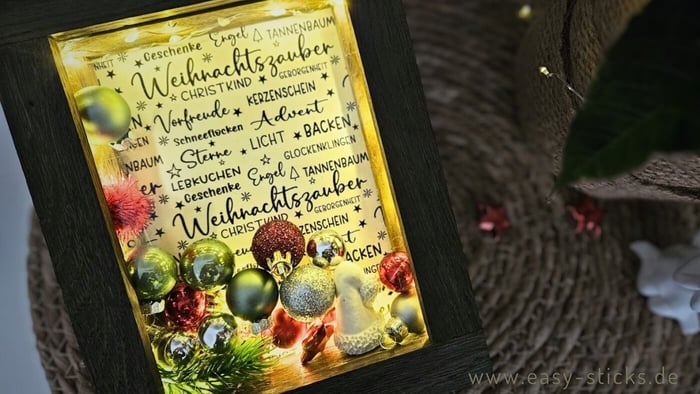 NHEIT Geschenke Engel TANNENBAUM
Weihnachtszauber
CHRISTKIND GEBORGENHEIT
Vorfreude KERZENSCHEIN
Schneeflocken Advent
Sterne LICHT BACKEN
NBAUM LEBKUCHEN GLOCKENKLINGEN
Geschenke Engel TANNENBAUM
Weihnachtszauber
CHRISTKIND GEBORGENHEIT
KERZENSCHEIN
BACKEN
www.easy-sticks.de